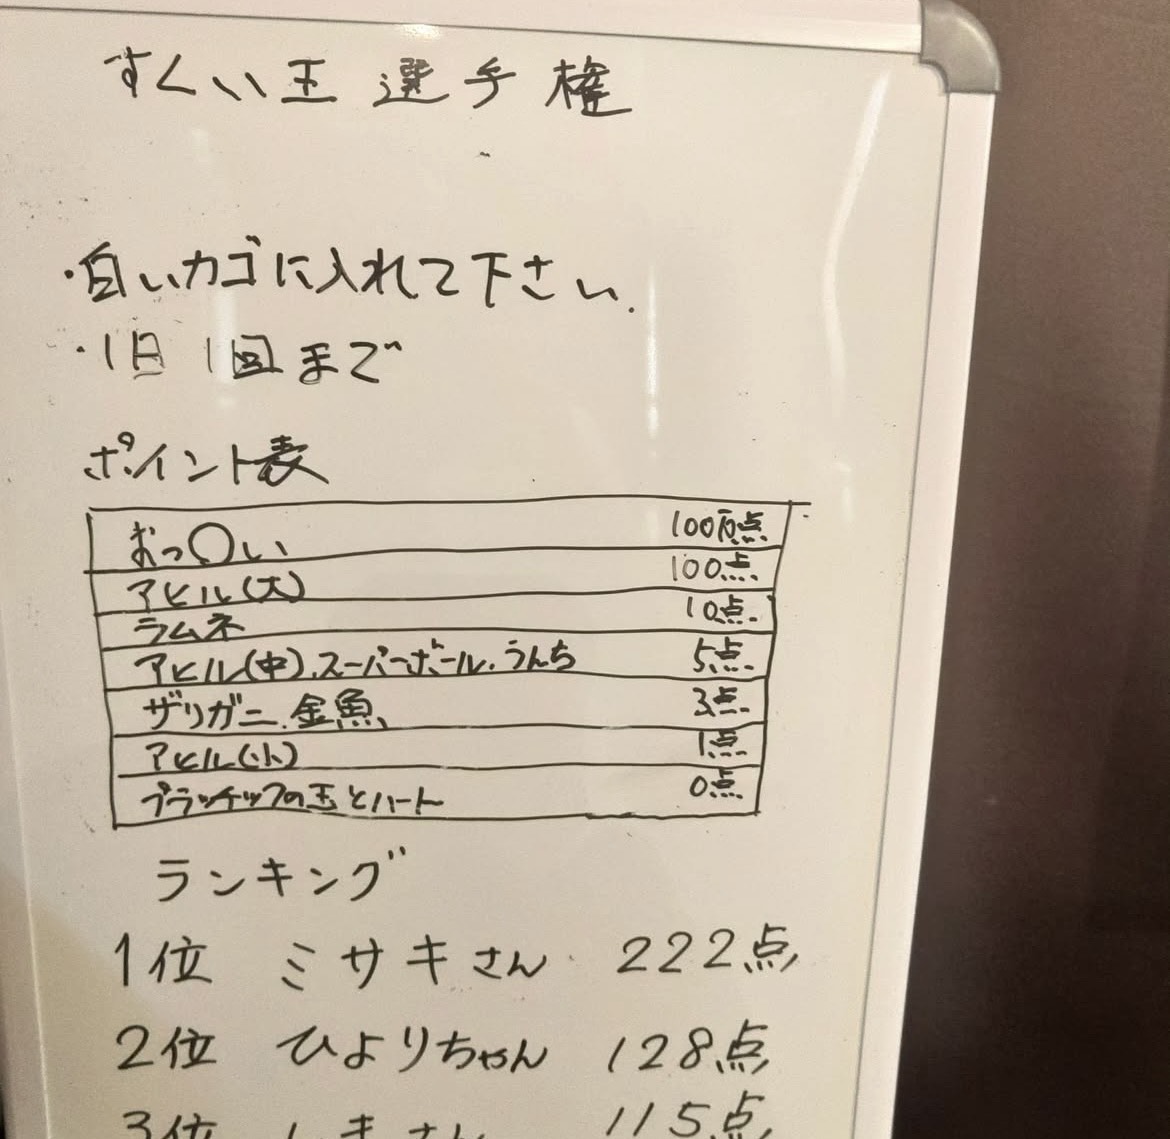 すくい王選手権
・白いカゴに入れて下さい.
・1日1回まで
ポイント表
おっ○い 100万点
アヒル(大) 100点
ラムネ 10点
アヒル(中).スーパーボール.うんち 5点
ザリガニ.金魚 3点
アヒル(小) 1点
プラッチックの玉とハート 0点
ランキング
1位 ミサキさん 222点
2位 ひよりちゃん 128点
3位 さん 115点